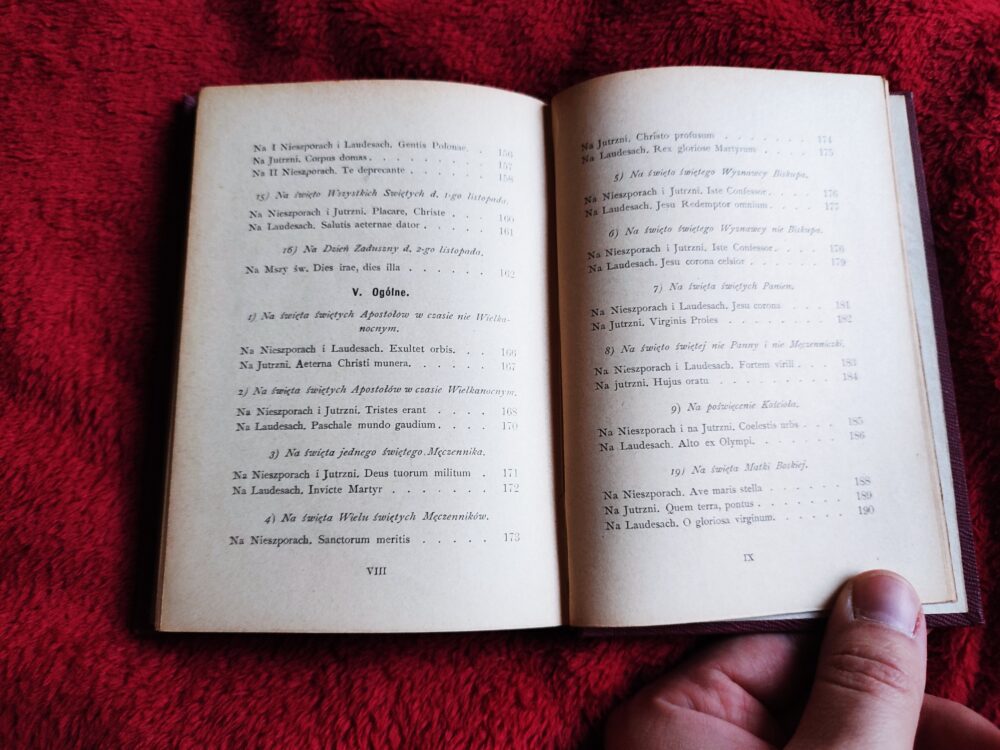 Na I Nieszporach i Laudesach. Gentis Polonae. . 156
Na Jutrzni. Corpus domas. . . . . . . . 157
Na II Nieszporach. Te deprecante . . . . . 158
15) Na święto Wszystkich Świętych d. 1-go listopada.
Na Nieszporach i Jutrzni. Placare, Christe . . . 160
Na Laudesach. Salutis aeternae dator . . . . . 161
16) Na Dzień Zaduszny d. 2-go listopada.
Na Mszy św. Dies irae, dies illa . . . . . . 162
V. Ogólne.
1) Na święta świętych Apostołów w czasie nie Wielka-
nocnym.
Na Nieszporach i Laudesach. Exultet orbis. . . 166
Na Jutrzni. Aeterna Christi munera. . . . . . 167
2) Na święta świętych Apostołów w czasie Wielkanocnym.
Na Nieszporach i Jutrzni. Tristes erant . . . . 168
Na Laudesach. Paschale mundo gaudium . . . . 170
3) Na święta jednego świętego Męczennika.
Na Nieszporach i Jutrzni. Deus tuorum militum . 171
Na Laudesach. Invicte Martyr . . . . . . . 172
4) Na święta Wielu świętych Męczenników.
Na Nieszporach. Sanctorum meritis . . . . . 173
VIII
Na Jutrzni. Christo profusum . . . . . . 174
Na Laudesach. Rex gloriose Martyrum . . . . 175
5) Na święta świętego Wyznawcy Biskupa.
Na Nieszporach i Jutrzni. Iste Confessor. . . . 176
Na Laudesach. Jesu Redemptor omnium . . . . 177
6) Na święto świętego Wyznawcy nie Biskupa.
Na Nieszporach i Jutrzni. Iste Confessor. . . . 176
Na Laudesach. Jesu corona celsior . . . . . 179
7) Na święta świętych Panien.
Na Nieszporach i Laudesach. Jesu corona . . . 181
Na Jutrzni. Virginis Proies . . . . . . . 182
8) Na święto świętej nie Panny i nie Męczenniczki.
Na Nieszporach i Laudesach. Fortem virili . . . 183
Na jutrzni. Hujus oratu . . . . . . . . 184
9) Na poświęcenie Kościoła.
Na Nieszporach i na Jutrzni. Coelestis urbs . . . 185
Na Laudesach. Alto ex Olympi. . . . . . . 186
19) Na święta Matki Boskiej.
Na Nieszporach. Ave maris stella . . . . . 188
Na Jutrzni. Quem terra, pontus . . . . . . 189
Na Laudesach. O gloriosa virginum. . . . . . 190
IX